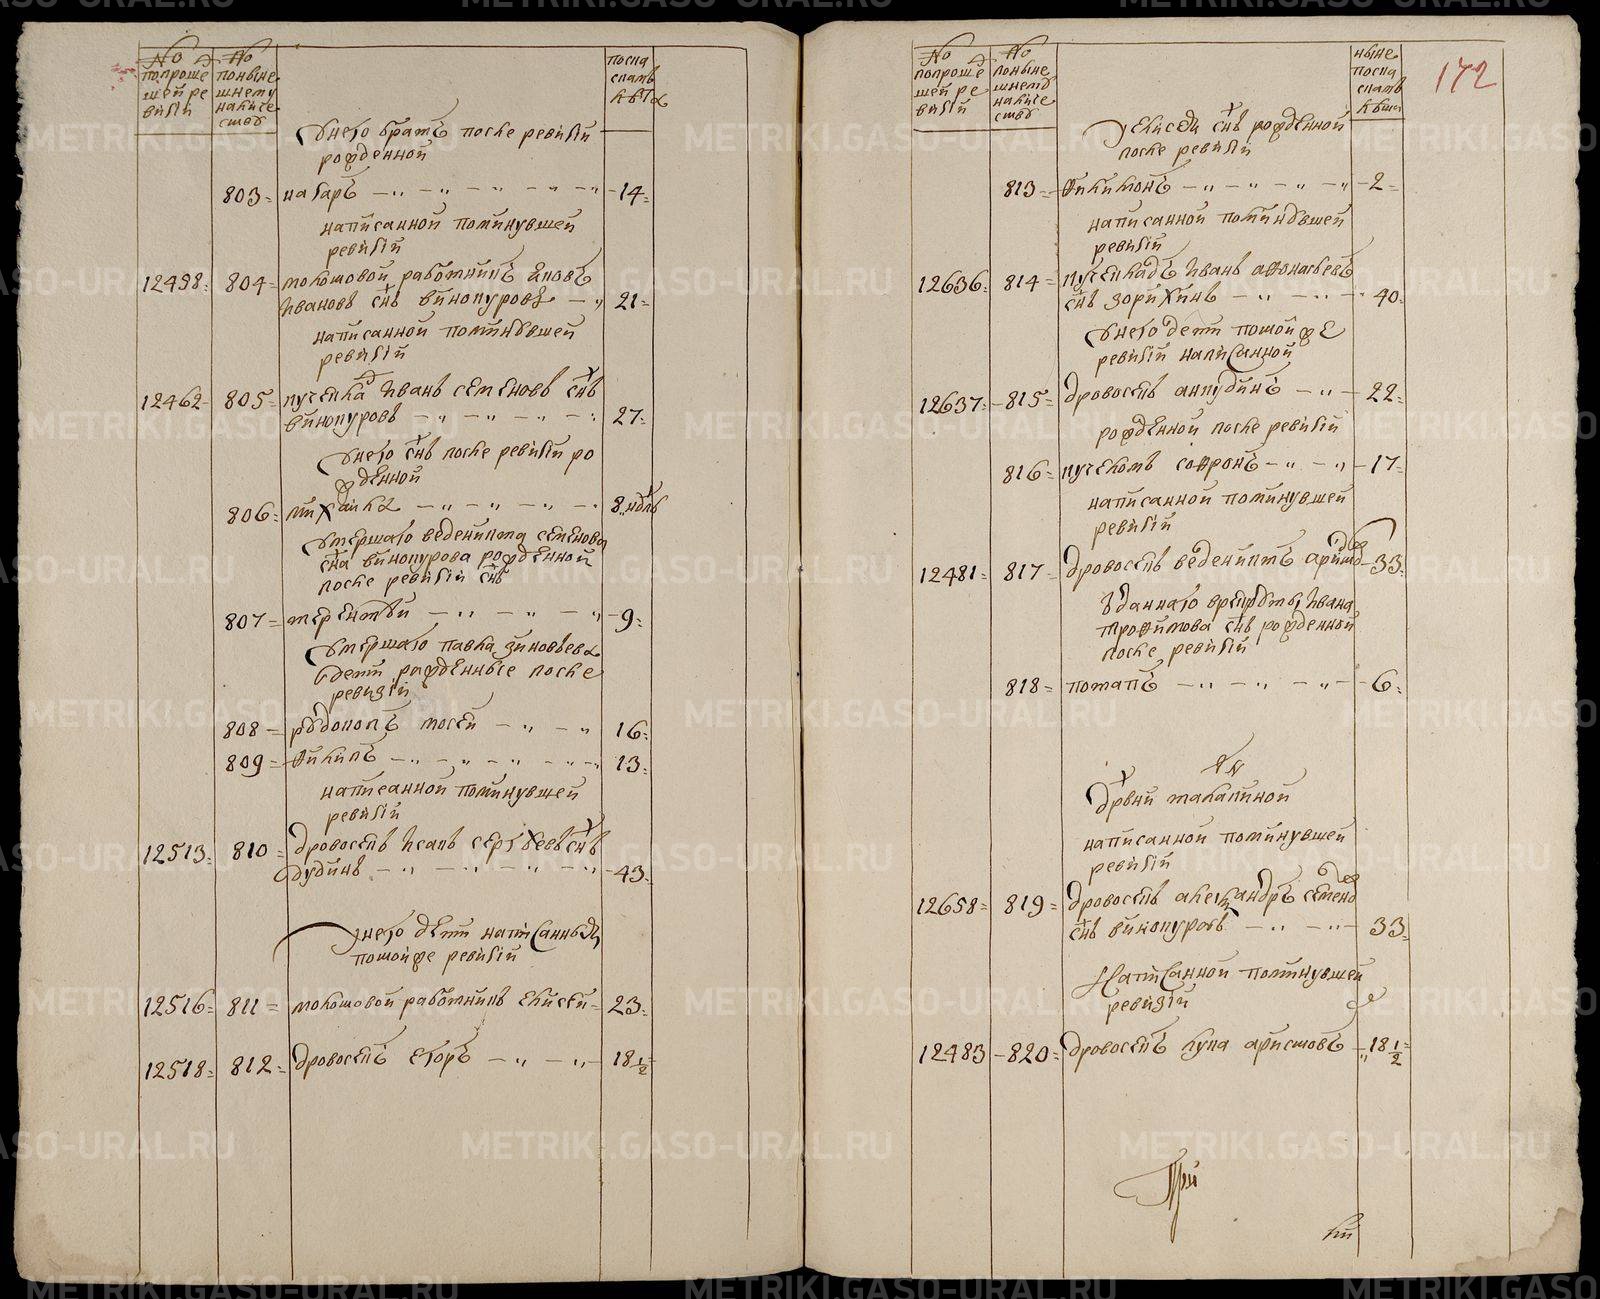 No
попроше
шей ре
визiи
No
поныне
шнему
написе
ству
после
унего братъ после ревизiи
рожденной
803 = назаръ — 14 =
написанной поминувшей
ревизiи
12498 = 804 = мокошовой работникъ яковъ
ивановъ снъ винокуровъ — 21 =
написанной поминувшей
ревизiи
12462 805 = иванъ семеновъ снъ
винокуровъ — 27 =
унего снъ после ревизiи ро
жденной
806 = михаила — 8 нѣдль
умершаго веденикта семенова
сна винокурова рожденной
после ревизiи снъ
807 = терентѣи — 9 =
умершаго павла зиновьева
дети рожденные после
ревизiи
808 = мосеи — 16 =
809 = Ѳилипъ — 13 =
написанной поминувшей
ревизiи
12513 = 810 = дровосекъ исакъ сергѣевъ снъ
дудинъ — 43 =
унего дети написанныя
потойже ревизiи
12516 = 811 = мокошовой работникъ елисеи = 23 =
12518 = 812 = дровосекъ егоръ — 18 1/2
No
попроше
шей ре
визiи
No
поныне
шнему
написе
ству
ныне
172
уелисея снъ рожденной
после ревизiи
813 = Ѳилимонъ — 2 =
написанной поминувшей
ревизiи
12636 = 814 = иванъ аѳонасьевъ
снъ зорихинъ — 40 =
унего дети потойже
ревизiи написанной
12637 = 815 = дровосекъ анкудинъ — 22 =
рожденной после ревизiи
816 = соѳронъ — 17 =
написанной поминувшей
ревизiи
12481 = 817 = дровосекъ веденихтъ — 33 =
зданнаго врекруты ивана
троѳимова снъ рожденной
после ревизiи
818 = потапъ — 6 =
дрвни талалиной
написанной поминувшей
ревизiи
12658 = 819 = дровосекъ александръ семено
снъ винокуровъ — 33 =
написанной поминувшей
ревизiи
12483 — 820 = дровосекъ лука аристовъ — 18 1/2
При
METRIKI.GASO-URAL.RU